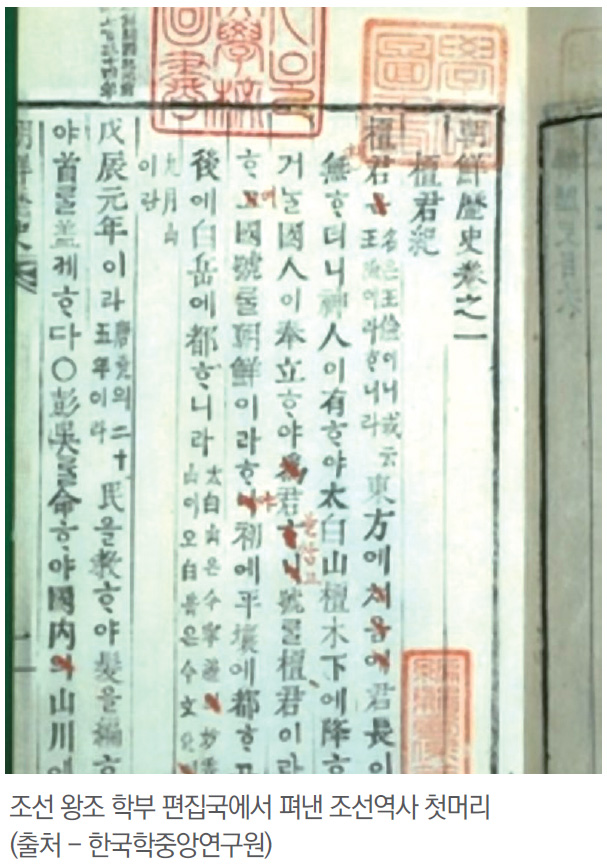 朝鮮歷史卷之一
檀君紀
檀君은 名은王儉이니或云 王險이라ᄒᆞ니라 東方에처음에君長이
無ᄒᆞ더니神人이有ᄒᆞ야太白山檀木下에降ᄒᆞ
거ᄂᆞᆯ國人이奉立ᄒᆞ야爲君ᄒᆞ니號ᄅᆞᆯ檀君이라
ᄒᆞ고國號ᄅᆞᆯ朝鮮이라ᄒᆞ니初에平壤에都ᄒᆞ고
後에白岳에都ᄒᆞ니라 太白山은今寧邊의妙香 山이오白岳은今文化
九月山
이라
戊辰元年이라 唐堯의二十 五年이라 民을敎ᄒᆞ야髮을編ᄒᆞ
야首ᄅᆞᆯ盖케ᄒᆞ다○彭吳ᄅᆞᆯ命ᄒᆞ야國內의山川에
朝鮮歷史
조선 왕조 학부 편집국에서 펴낸 조선역사 첫머리
(출처 – 한국학중앙연구원)